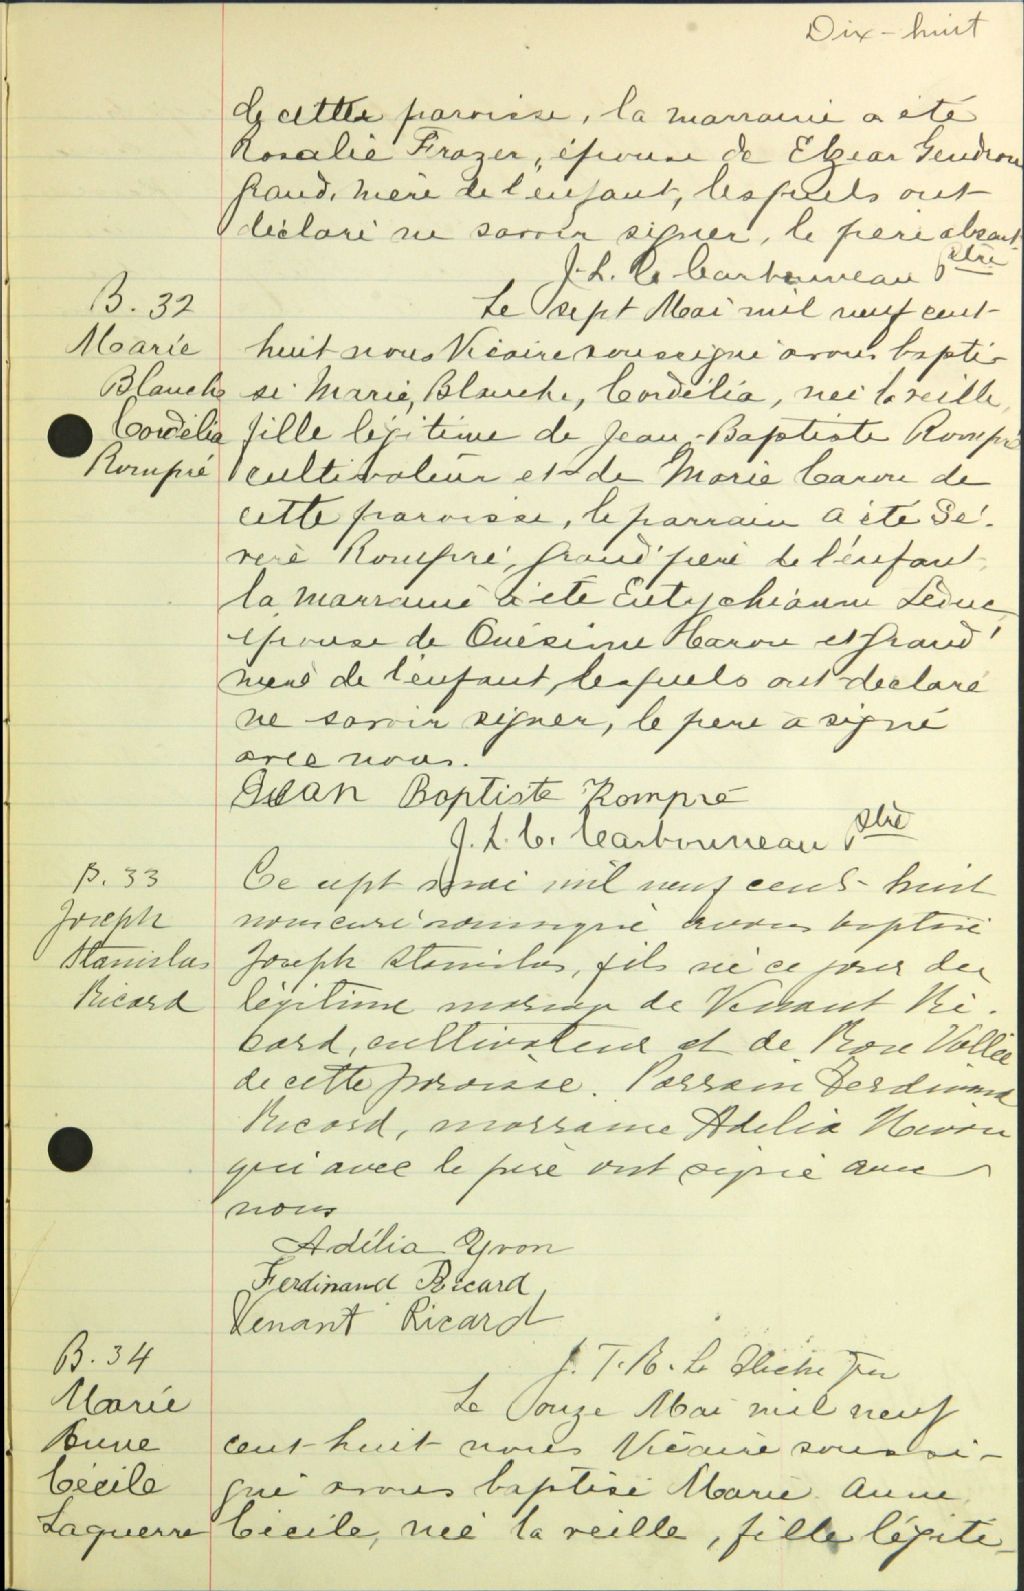 Dix-huit
de cette paroisse, la marraine a été
Rosalie Frazer, épouse de Elzear Gendron
grand'mère de l'enfant, lesquels ont
déclaré ne savoir signer, le père absent
J. L. C. Carbonneau ptre
B. 32
Marie
Blanche
Cordélia
Rompré
Le sept Mai mil neuf cent-
huit nous Vicaire soussigné avons bapti-
sé Marie, Blanche, Cordélia, née la veille,
fille légitime de Jean-Baptiste Rompré
cultivateur et de Marie Caron de
cette paroisse, le parrain a été Sé-
verè Rompré, grand'père de l'enfant,
la marraine a été Eutychianne Leduc
épouse de Onésime Caron et grand'
mère de l'enfant, lesquels ont déclaré
ne savoir signer, le père a signé
avec nous.
Jean Baptiste Rompré
J. L. C. Carbonneau ptre
B. 33
Joseph
Stanislas
Ricard
Ce sept mai mil neuf cent-huit
nous curé soussigné avons baptisé
Joseph Stanislas, fils né ce jour du
légitime mariage de Venant Ri-
card, cultivateur et de Rose Vallée
de cette paroisse. Parrain Ferdinand
Ricard, marraine Adelia Hivon
qui avec le père ont signé avec
nous
Adélia Yvon
Ferdinand Ricard
Venant Ricard
J. T. R.
B. 34
Marie
Anne
Cécile
Laguerre
Le onze Mai mil neuf
cent-huit nous Vicaire soussi-
gné avons baptisé Marie Anne
Cécile, née la veille, fille légiti-